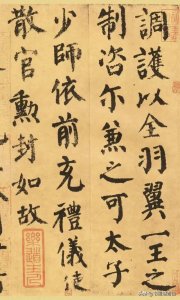 調護以全羽翼一王之
制咨尒兼之可太子
少師依前充禮儀使
散官勳封如故